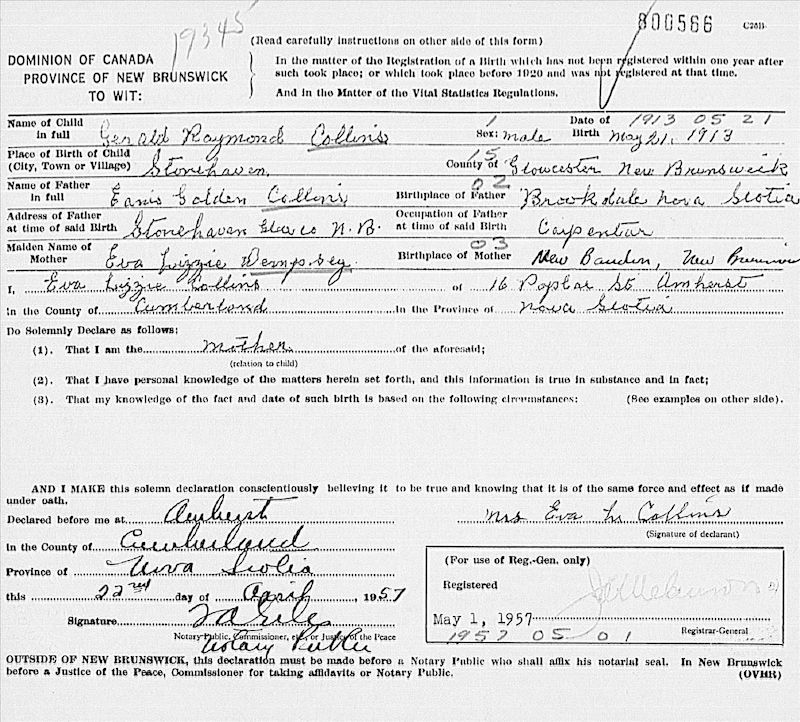 19345
800566 C28B
(Read carefully instructions on other side of this form)
DOMINION OF CANADA
PROVINCE OF NEW BRUNSWICK
TO WIT:
In the matter of the Registration of a Birth which has not been registered within one year after
such took place; or which took place before 1920 and was not registered at that time.
And in the Matter of the Vital Statistics Regulations.
Name of Child in full Gerald Raymond Collins Sex: 1 male Date of Birth 1913 05 21 May 21, 1913
Place of Birth of Child (City, Town or Village) Stonehaven County of 15 Gloucester New Brunswick
Name of Father in full Golden Collins Birthplace of Father 02 Brookdale Nova Scotia
Address of Father at time of said Birth Stonehaven N.B. Occupation of Father at time of said Birth Carpentar
Maiden Name of Mother Eva Lizzie Dempsey Birthplace of Mother 03 New Bandon, New
I, Eva Lizzie Collins of 16 Poplar St Amherst
in the County of Cumberland in the Province of Nova Scotia
Do Solemnly Declare as follows:
(1). That I am the mother of the aforesaid;
(relation to child)
(2). That I have personal knowledge of the matters herein set forth, and this information is true in substance and in fact;
(3). That my knowledge of the fact and date of such birth is based on the following circumstances: (See examples on other side).
AND I MAKE this solemn declaration conscientiously believing it to be true and knowing that it is of the same force and effect as if made
under oath.
Declared before me at Amherst Mrs Eva L Collins
(Signature of declarant)
in the County of Cumberland
Province of Nova Scotia
this 22nd day of April, 1957
Signature
Notary Public, Commissioner, etc., or Justice of the Peace
Notary Public
(For use of Reg.-Gen. only)
Registered
May 1, 1957
1957 05 01 Registrar-General
OUTSIDE OF NEW BRUNSWICK, this declaration must be made before a Notary Public who shall affix his notarial seal. In New Brunswick
before a Justice of the Peace, Commissioner for taking affidavits or Notary Public. (OVER)